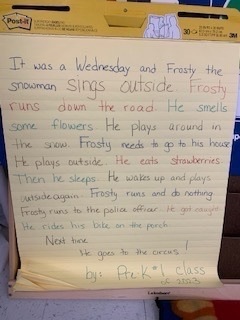 Post-it
30
3M
It was a Wednesday and Frosty the
snowman sings outside. Frosty
runs down the road. He smells
some flowers. He plays around in
the snow. Frosty needs to go to his house
He plays outside. He eats strawberries
Then he sleeps. He wakes up and plays
outside again. Frosty runs and do nothing
Frosty runs to the police officer. He got caught
He rides his bike on the porch
Next time
He goes to the circus!
by: Pre-K*1 class
of 2023